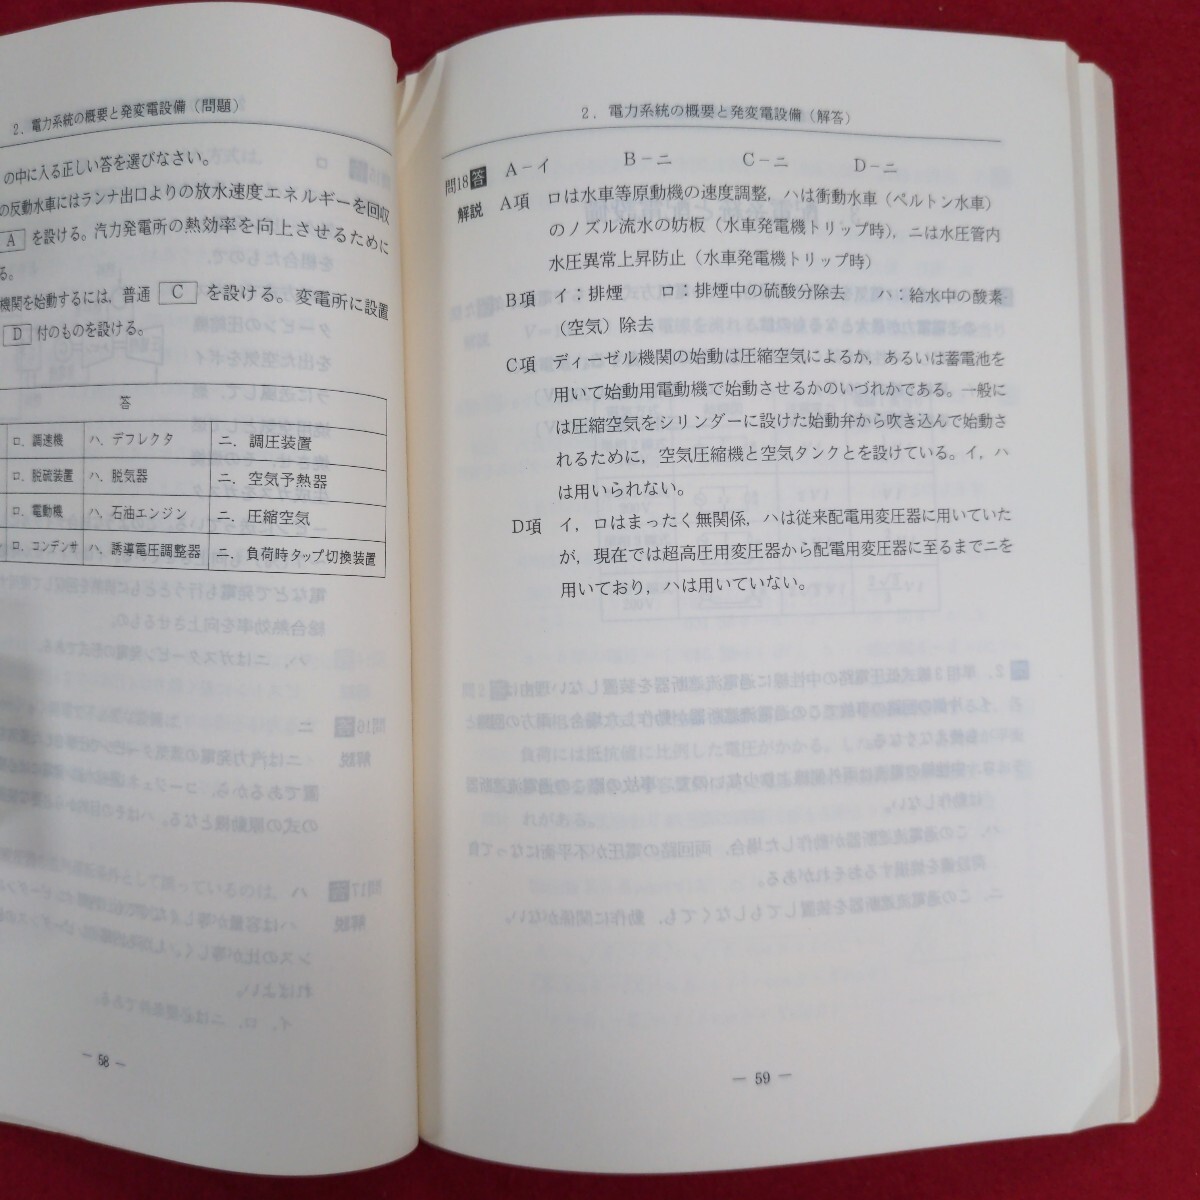 2．電力系統の概要と発変電設備（問題）
の中に入る正しい答を選びなさい。
の反動水車にはランナ出口よりの放水速度エネルギーを回収
A を設ける。汽力発電所の熱効率を向上させるために
る。
機関を始動するには，普通 C を設ける。変電所に設置
D 付のものを設ける。
答
ロ．調速機 ハ．デフレクタ ニ．調圧装置
ロ．脱硫装置 ハ．脱気器 ニ．空気予熱器
ロ．電動機 ハ．石油エンジン ニ．圧縮空気
ロ．コンデンサ ハ．誘導電圧調整器 ニ．負荷時タップ切換装置
－ 58 －
2．電力系統の概要と発変電設備（解答）
問18 答 A－イ B－ニ C－ニ D－ニ
解説 A項 ロは水車等原動機の速度調整，ハは衝動水車（ペルトン水車）
のノズル流水の妨板（水車発電機トリップ時），ニは水圧管内
水圧異常上昇防止（水車発電機トリップ時）
B項 イ：排煙 ロ：排煙中の硫酸分除去 ハ：給水中の酸素
（空気）除去
C項 ディーゼル機関の始動は圧縮空気によるか，あるいは蓄電池を
用いて始動用電動機で始動させるかのいづれかである。一般に
は圧縮空気をシリンダーに設けた始動弁から吹き込んで始動さ
れるために，空気圧縮機と空気タンクとを設けている。イ，ハ
は用いられない。
D項 イ，ロはまったく無関係，ハは従来配電用変圧器に用いていた
が，現在では超高圧用変圧器から配電用変圧器に至るまでニを
用いており，ハは用いていない。
－ 59 －